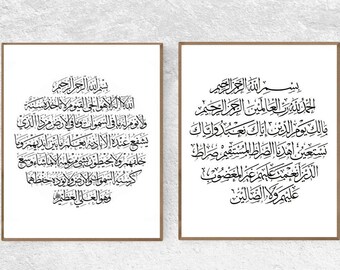 بسم الله الرحمن الرحيم
الله لا إله إلا هو الحي القيوم لا تأخذه سنة
ولا نوم له ما في السموات وما في الأرض من ذا الذي
يشفع عنده إلا بإذنه يعلم ما بين أيديهم وما
خلفهم ولا يحيطون بشيء من علمه إلا بما شاء وسع
كرسيه السموات والأرض ولا يؤده حفظهما
وهو العلي العظيم
بسم الله الرحمن الرحيم
الحمد لله رب العالمين الرحمن الرحيم
مالك يوم الدين إياك نعبد وإياك
نستعين اهدنا الصراط المستقيم صراط
الذين أنعمت عليهم غير المغضوب
عليهم ولا الضالين